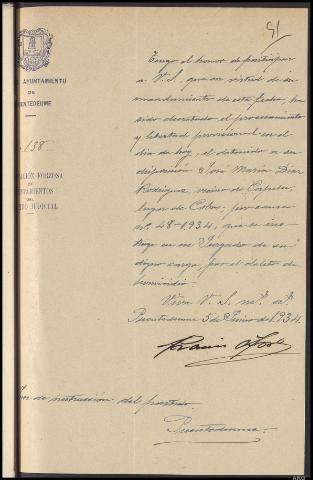 51
AYUNTAMIENTO
DE
PUENTEDEUME
138
FORZOSA
DE
AYUNTAMIENTOS
DEL
JUDICIAL
Tengo el honor de participar
a V.S. que en virtud de su
mandamiento de esta fecha, ha
sido decretado el procesamiento
y libertad provisional en el
dia de hoy, el detenido a su
disposición José María Diaz
Rodríguez, vecino de Capela,
lugar de Cobas, por causa
nº. 48-1934, que se ins
truye en ese Juzgado de su
digno cargo por el delito de
homicidio.
Viva V. S. mº. aº.
Puentedeume 5 de Junio de 1.934.
de instrucción del partido.
Puentedeume.